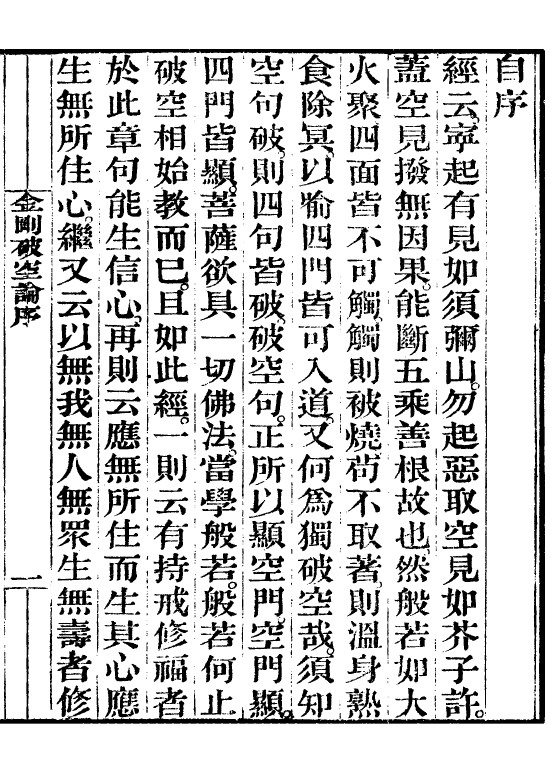 自序
經云。寧起有見如須彌山。勿起惡取空見如芥子許。
蓋空見撥無因果。能斷五乘善根故也。然般若如大
火聚。四面皆不可觸。觸則被燒。苟不取著。則溫身熟
食除冥。以喻四門皆可入道。又何爲獨破空哉。須知
空句破。則四句皆破。破空句。正所以顯空門。空門顯。
四門皆顯。菩薩欲具一切佛法。當學般若。般若何止
破空相始教而已。且如此經。一則云有持戒修福者
於此章句能生信心。再則云應無所住而生其心。應
生無所住心。繼又云以無我無人無眾生無壽者修
金剛破空論序
一